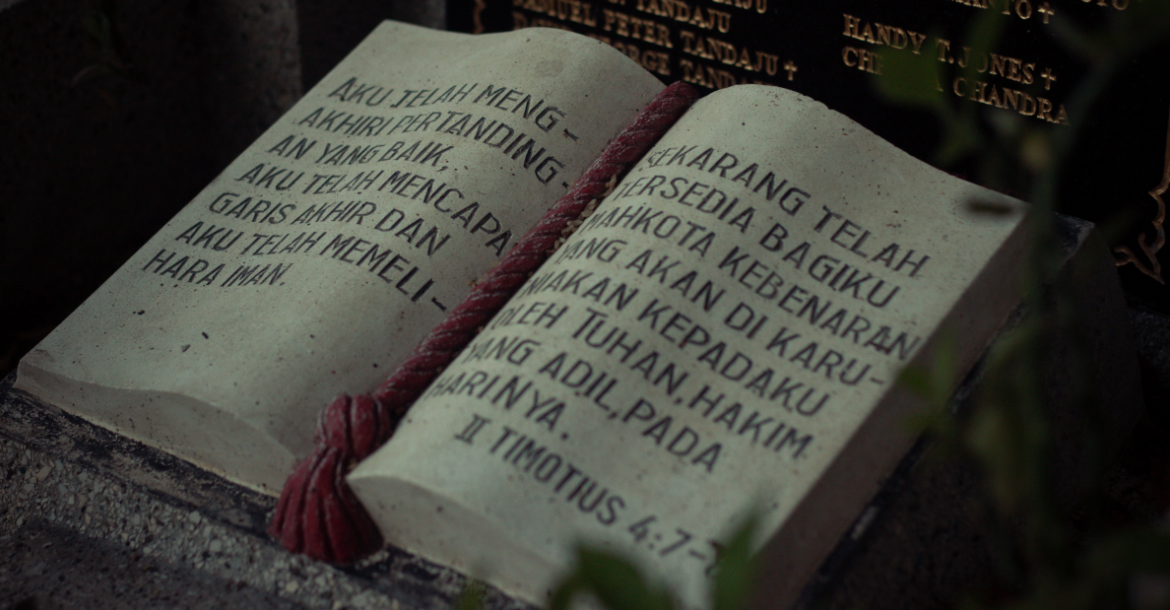 TANDAJU
SAMUEL PETER TANDAJU
GEORGE TANDAJU
HANDY T. JONES ✝
CHANDRA
AKU TELAH MENG-
AKHIRI PERTANDING-
AN YANG BAIK,
AKU TELAH MENCAPAI
GARIS AKHIR DAN
AKU TELAH MEMELI-
HARA IMAN.
SEKARANG TELAH
TERSEDIA BAGIKU
MAHKOTA KEBENARAN
YANG AKAN DI KARU-
NIAKAN KEPADAKU
OLEH TUHAN, HAKIM
YANG ADIL, PADA
HARINYA.
II TIMOTIUS 4:7-